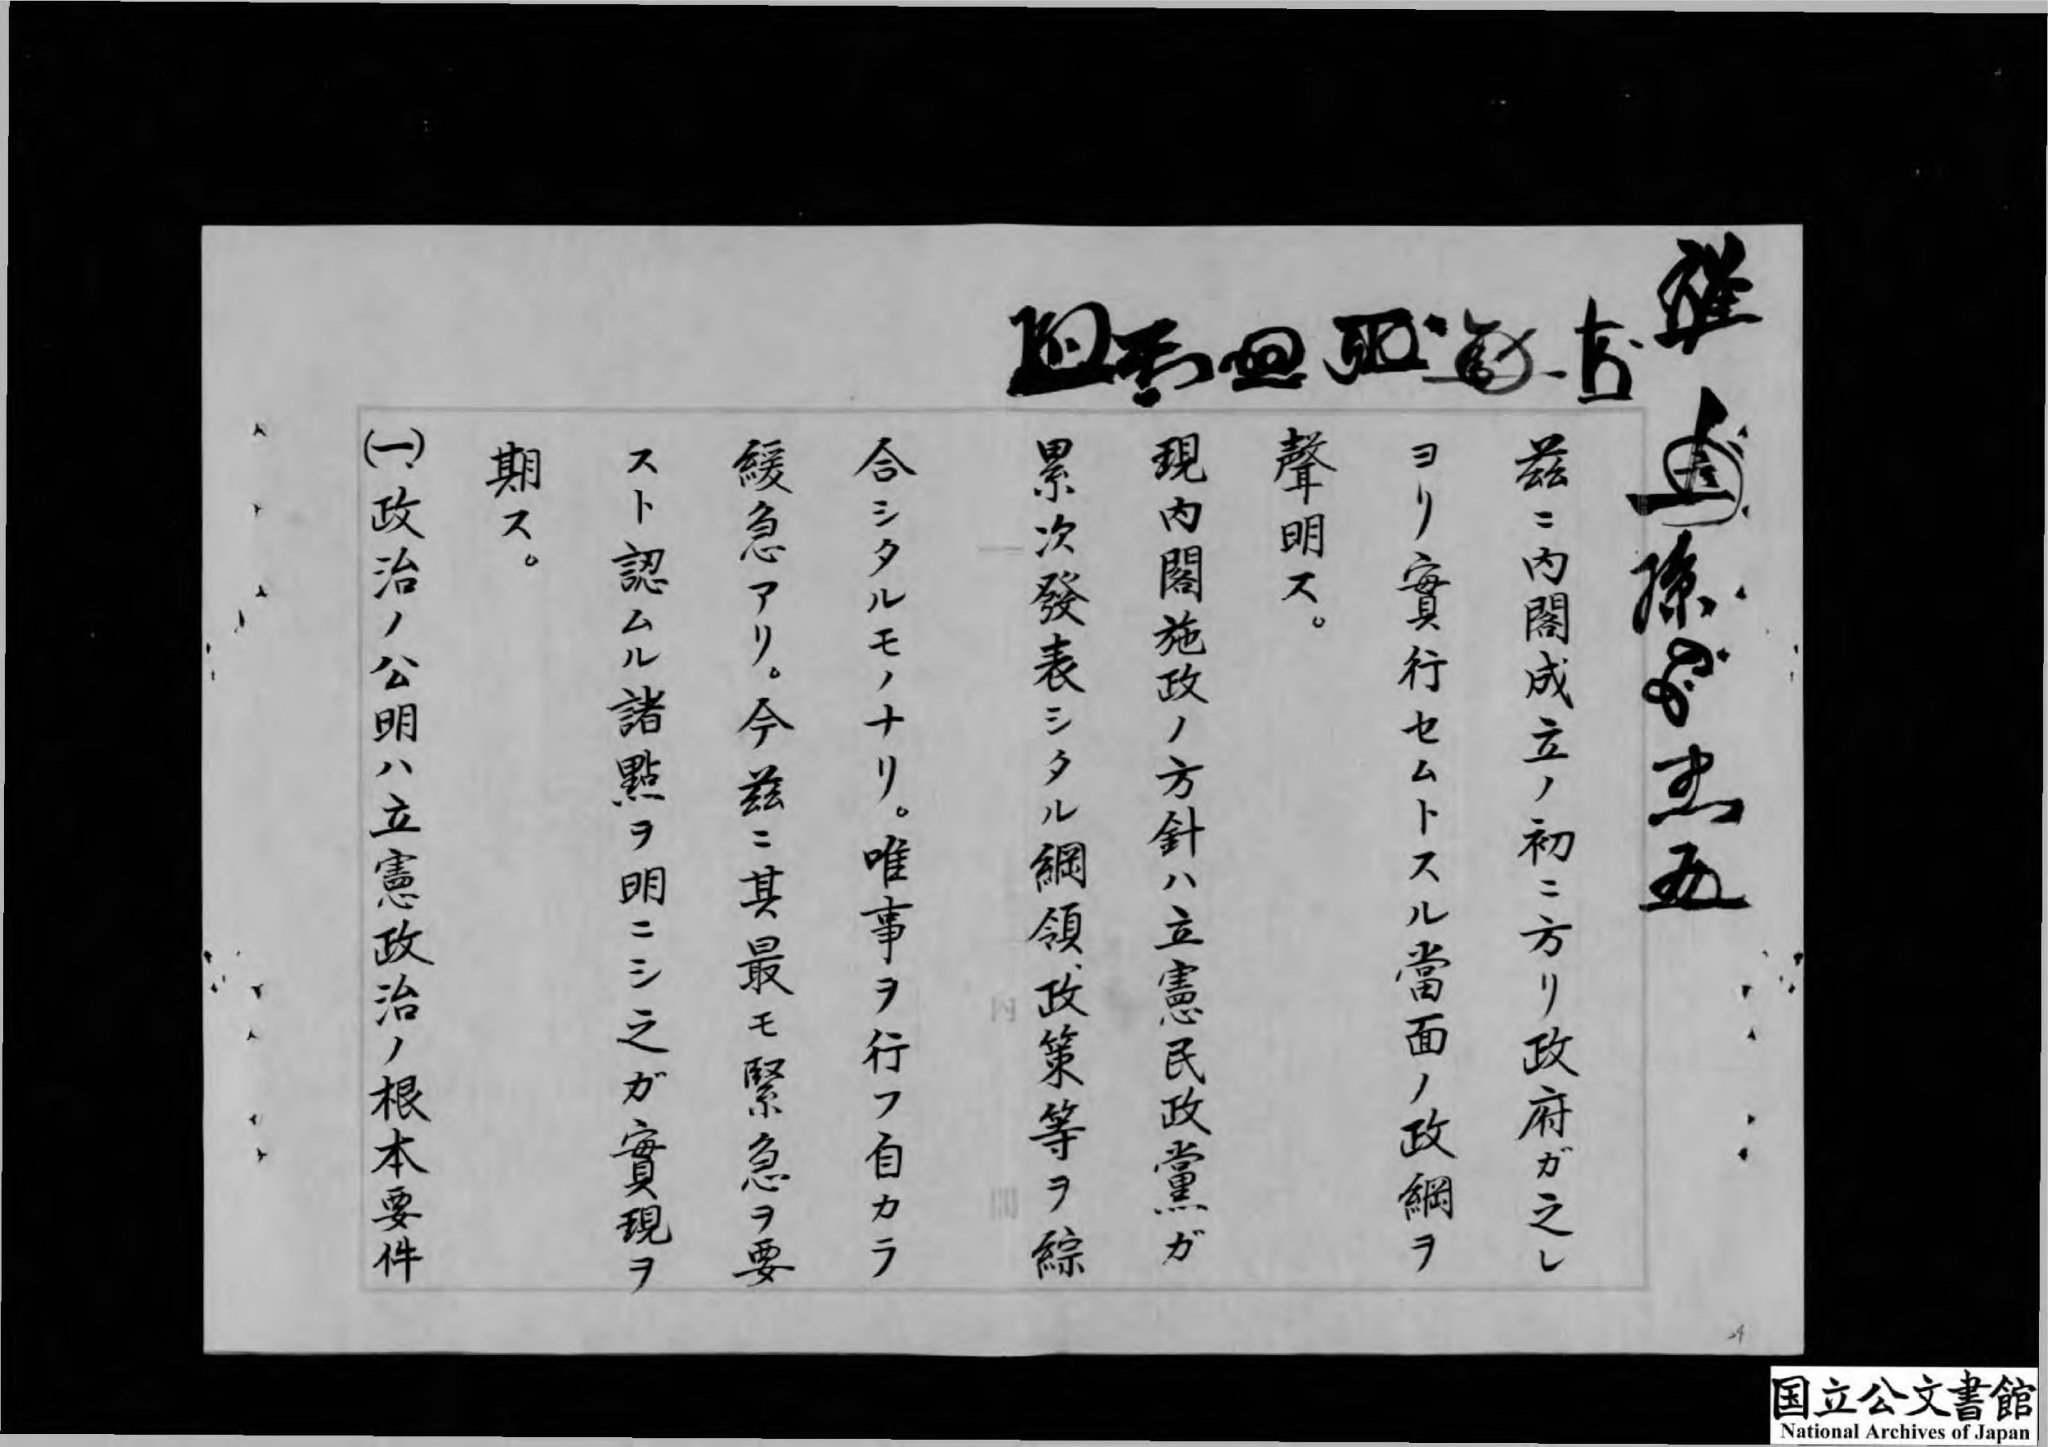 茲ニ内閣成立ノ初ニ方リ政府ガ之レ
ヨリ實行セムトスル當面ノ政綱ヲ
聲明ス。
現内閣施政ノ方針ハ立憲民政黨ガ
累次發表シタル綱領、政策等ヲ綜
合シタルモノナリ。唯事ヲ行フ自カラ
緩急アリ。今茲ニ其最モ緊急ヲ要
スト認ムル諸點ヲ明ニシ之ガ實現ヲ
期ス。
(一)、政治ノ公明ハ立憲政治ノ根本要件
国立公文書館
National Archives of Japan